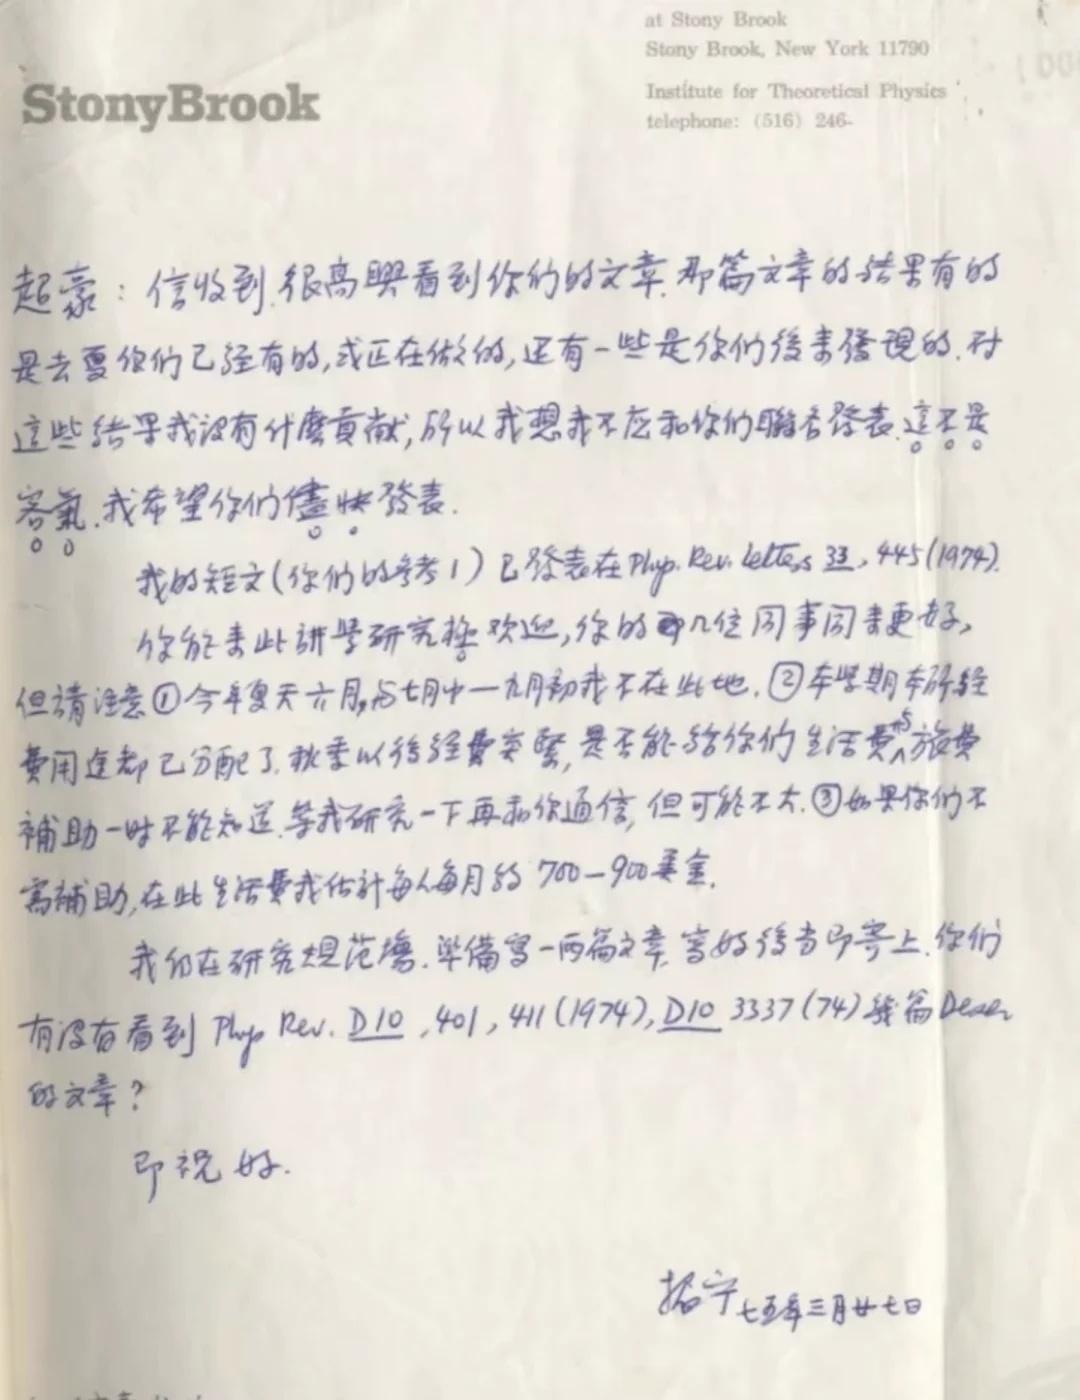 at Stony Brook
Stony Brook, New York 11790
StonyBrook
Institute for Theoretical Physics
telephone: (516) 246-
起豪：信收到.很高興看到你们的文章.那篇文章的结果有的
是去夏你们已经有的,或正在做的,还有一些是你们後来發現的.对
這些结果我没有什麽貢献,所以我想我不应和你们聯名發表.這不是
客氣.我希望你们儘快發表.
我的短文(你们的参考1)已發表在Phys. Rev. Letters 33, 445(1974).
你能来此講學研究極欢迎,你的几位同事同来更好,
但請注意①今年夏天六月,与七月中一九月初我不在此地.②本學期本所经
費用途都已分配了.秋季以後经費奕緊,是否能给你们生活費与旅費
補助一时不能知道.等我研究一下再和你通信,但可能不大.③如果你们不
需補助,在此生活費我估計每人每月约700—900美金.
我们在研究规范場.準備寫一两篇文章.寫好後当即寄上.你们
有没有看到 Phys Rev. D10, 401, 411(1974), D10 3337(74)幾篇Deser
的文章?
即祝好.
振宁七五年三月廿七日